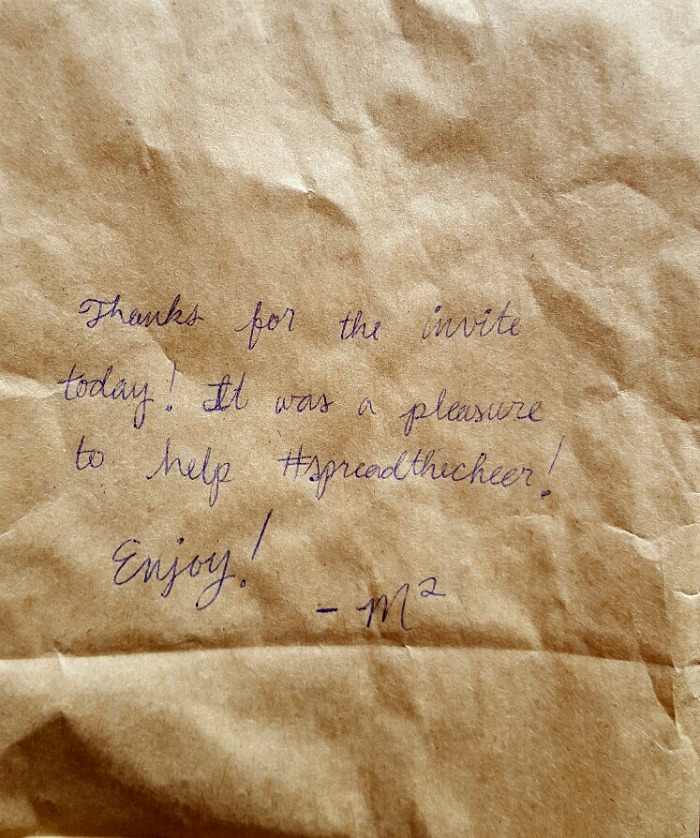 Thanks for the invite
today! It was a pleasure
to help #spreadthecheer!
Enjoy!
- M²